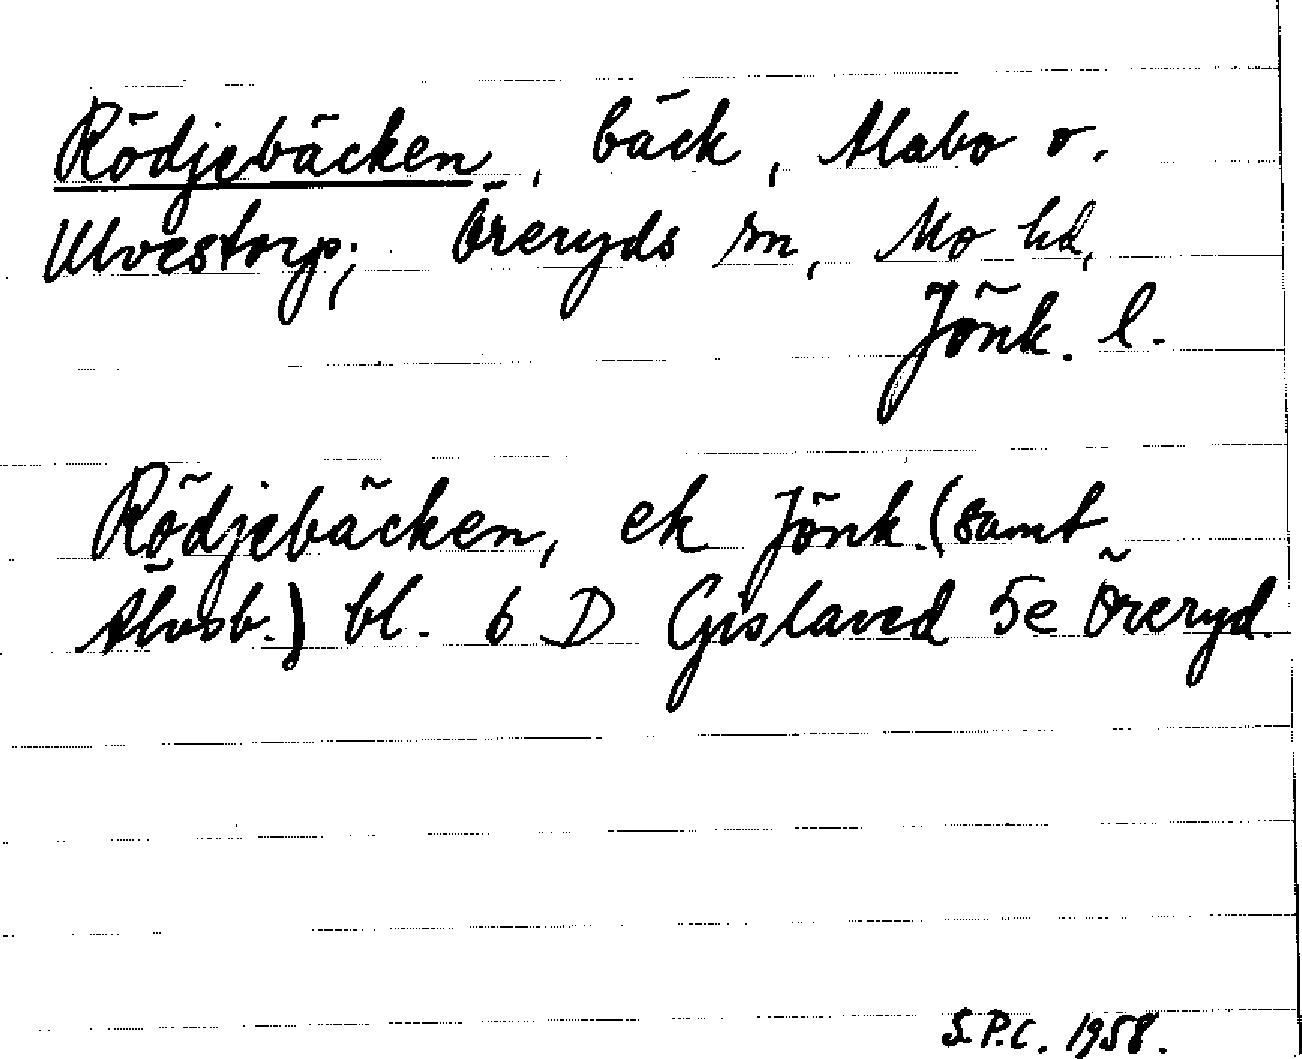 Rödjebäcken, bäck, Alabo o.
Ulvestorp; Öreryds sn, Mo hd,
Jönk. l.
Rödjebäcken, ek Jönk. (samt
Älvsb.) bl. 6 D Gislaved 5e Öreryd.
S.P.C. 1958.